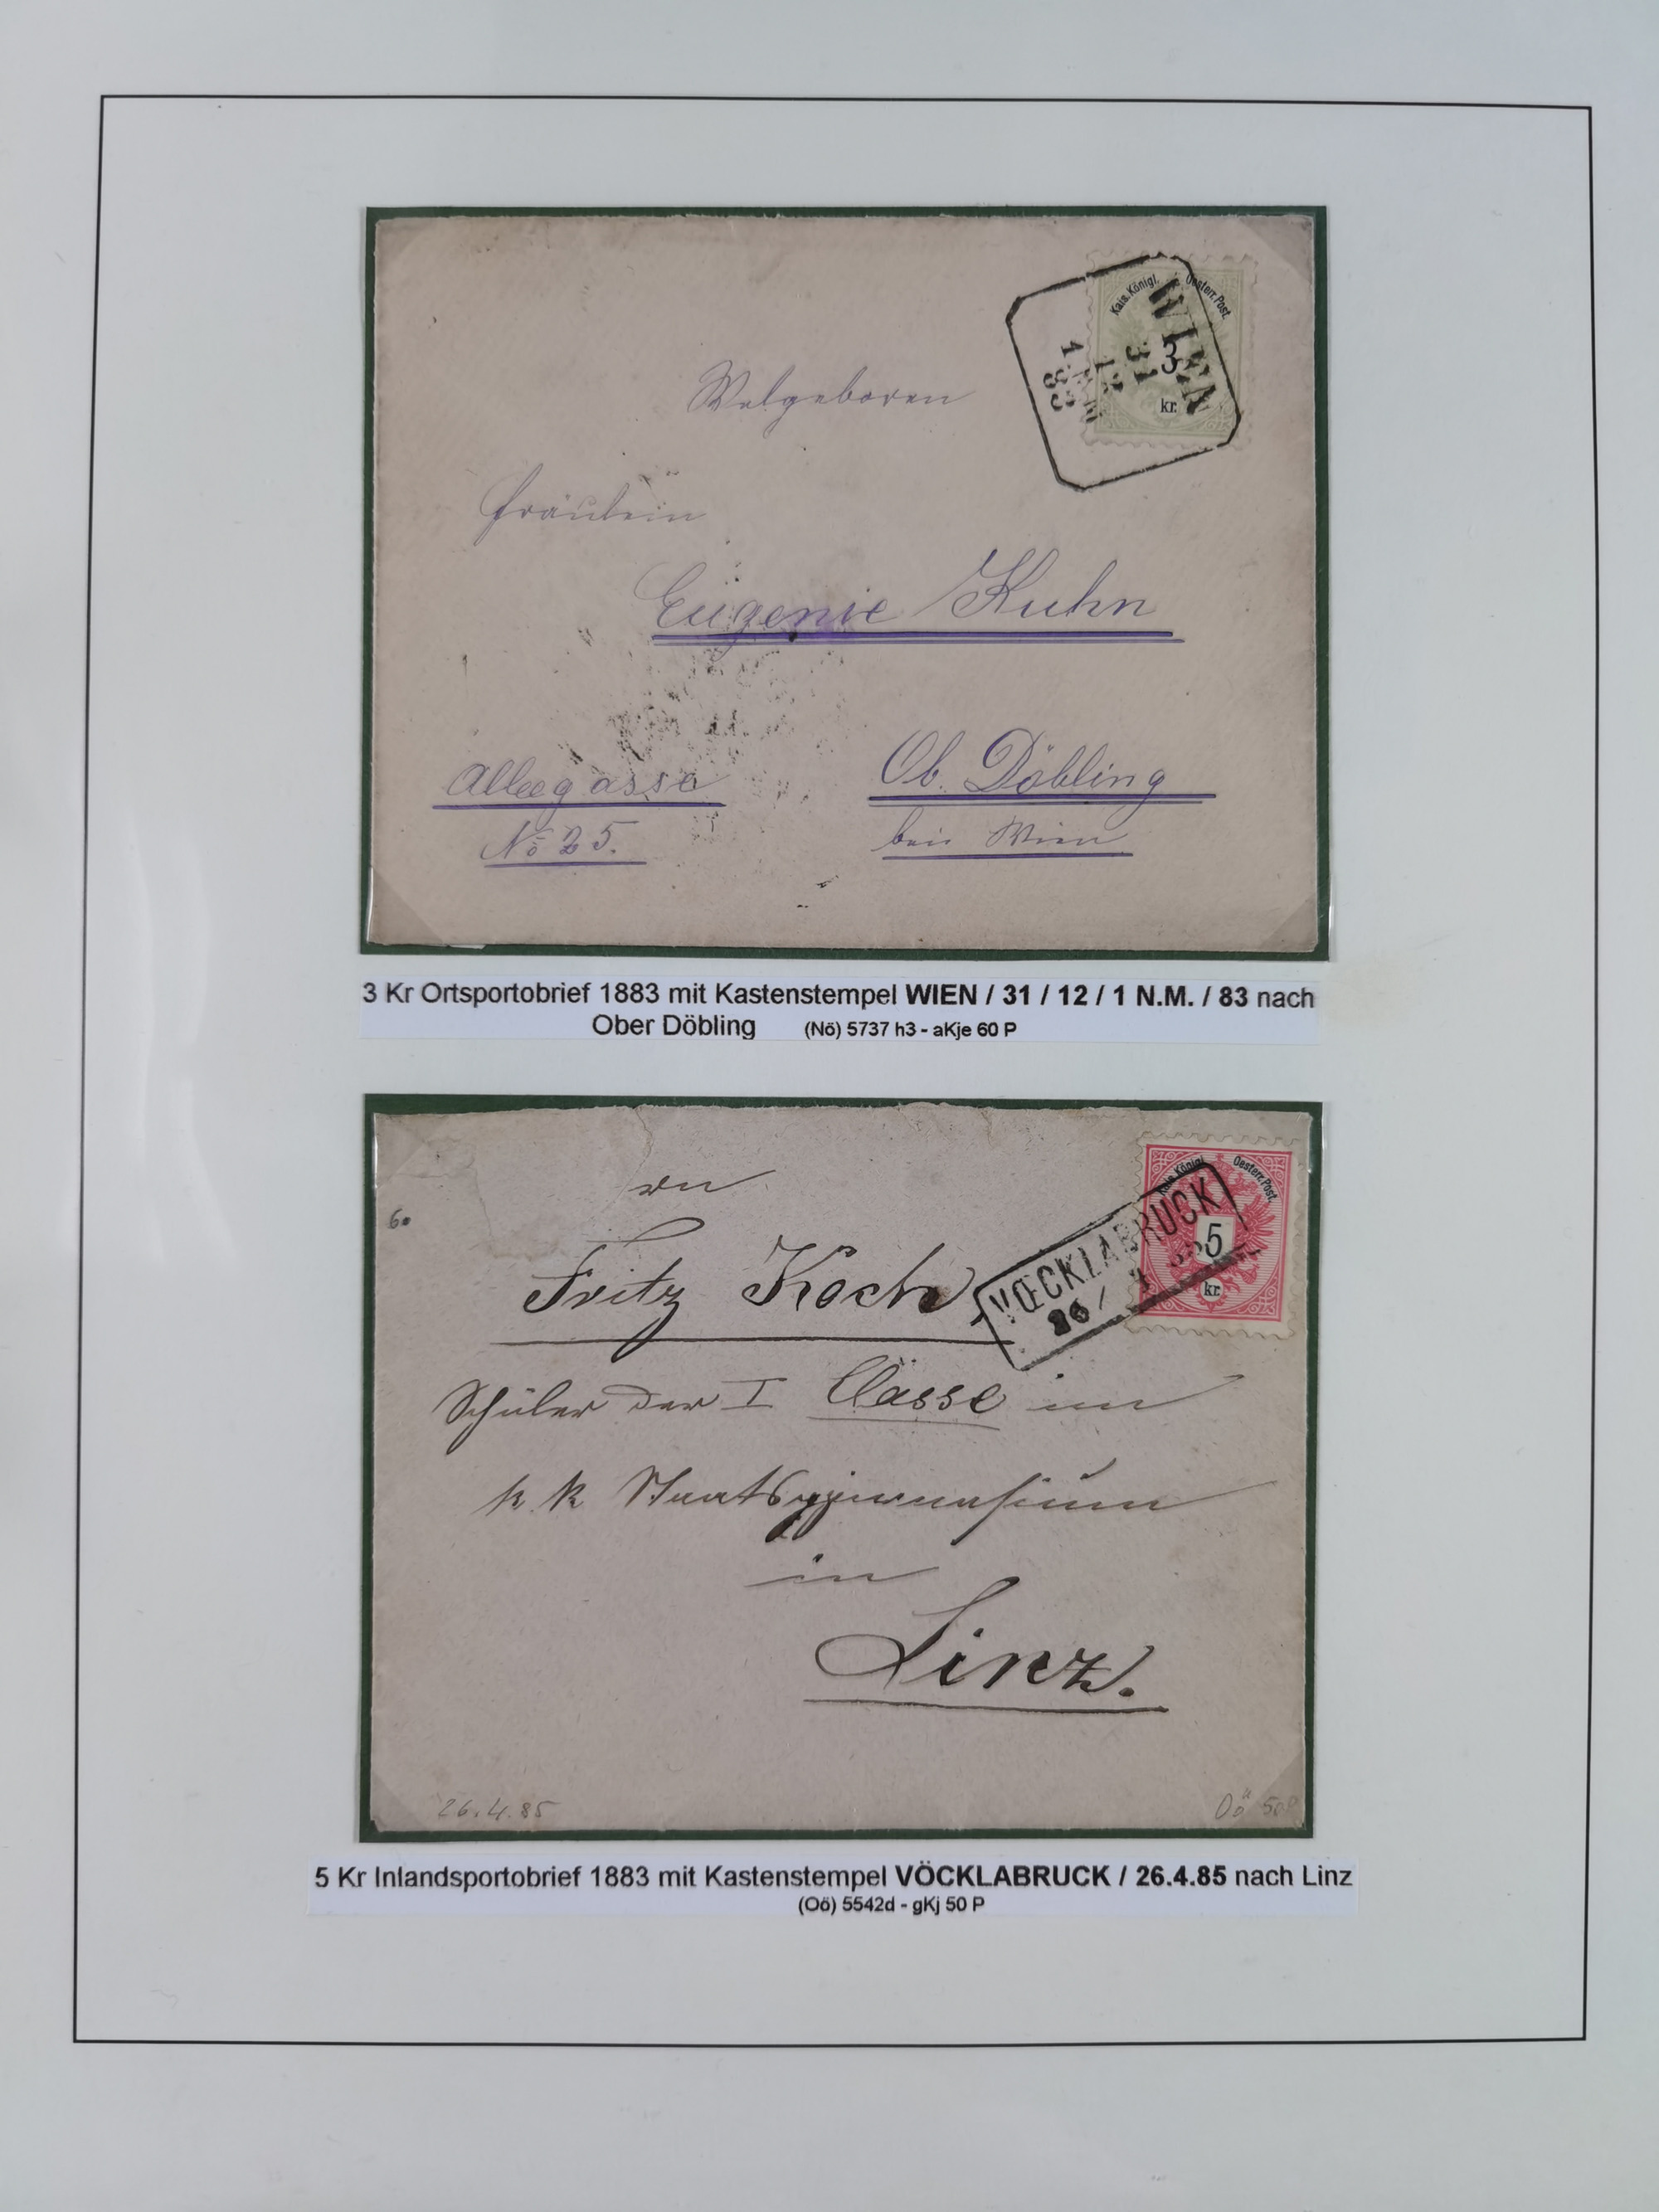 Kais. Königl. Oesterr. Post.
3
kr.
WIEN
31
12
1 N.M.
83
Wolgeboren
Fräulein
Eugenie Kuhn
Alleegasse
No 25.
Ob. Döbling
bei Wien
3 Kr Ortsportobrief 1883 mit Kastenstempel WIEN / 31 / 12 / 1 N.M. / 83 nach
Ober Döbling (Nö) 5737 h3 - aKje 60 P
Kais. Königl. Oesterr. Post.
5
kr.
VŒCKLABRUCK
26/4 85
60
An
Fritz Koch,
Schüler der I Classe im
k. k. Staatsgymnasium
in
Linz.
26.4.85
Oö 50P
5 Kr Inlandsportobrief 1883 mit Kastenstempel VÖCKLABRUCK / 26.4.85 nach Linz
(Oö) 5542d - gKj 50 P